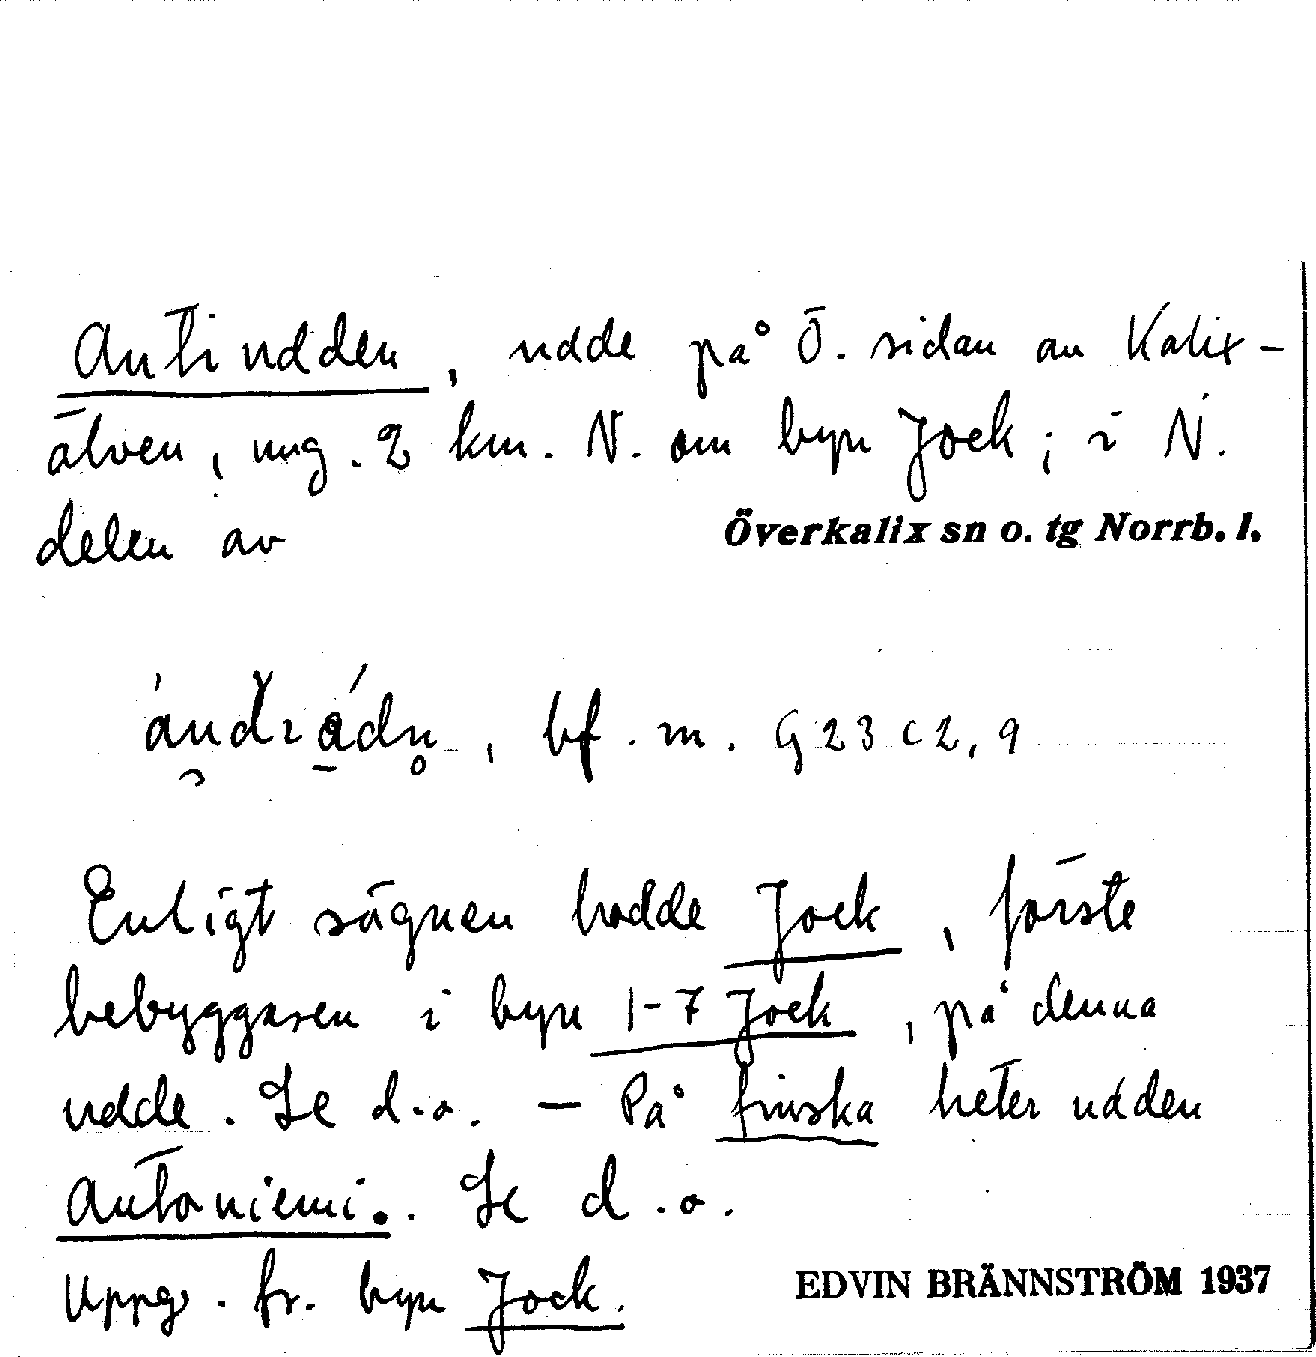 Antiudden, udde på Ö. sidan au Kalix-
älven, ung. 2 km. N. om byn Jock; i N.
delen av Överkalix sn o. tg Norrb. l.
bf. m. G 23 c 2, 9
Enligt sägnen bodde Jock, förste
bebyggaren i byn 1-7 Jock, på denna
udde. Se d.o. — På finska heter udden
Antoniemi.. Se d.o.
Uppg. fr. byn Jock.
EDVIN BRÄNNSTRÖM 1937